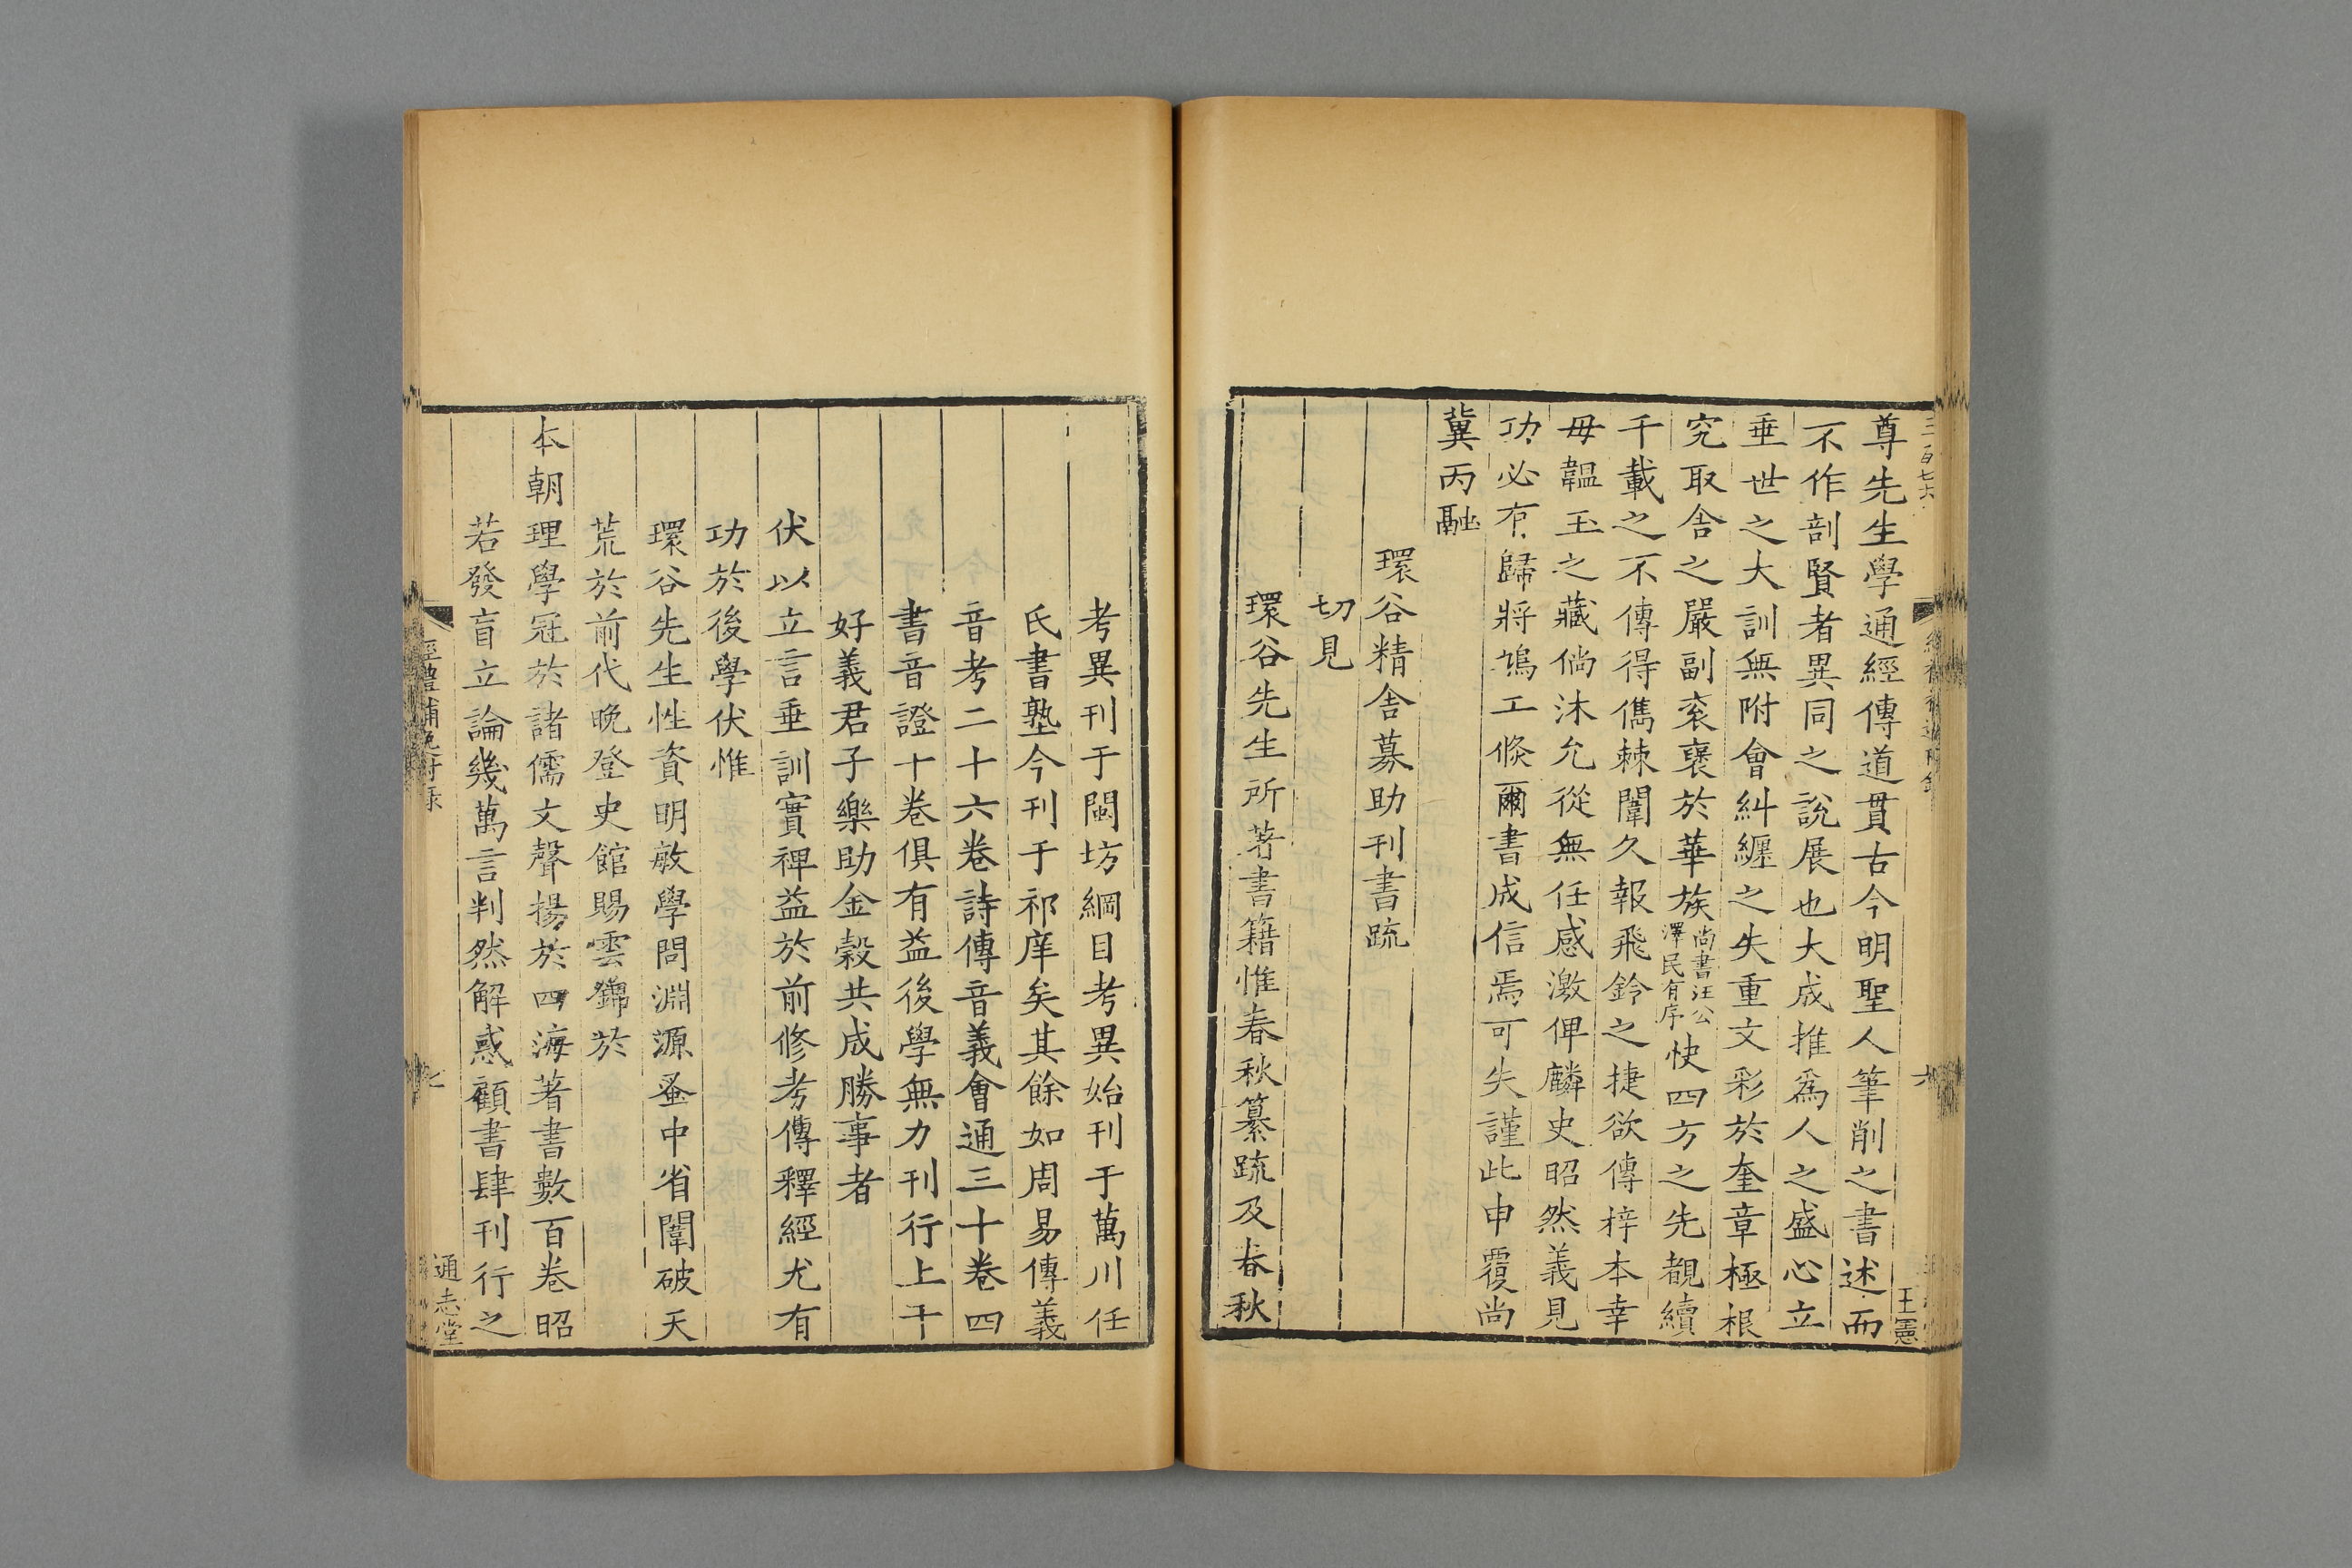 三百七六
王憲
尊先生學通經傳道貫古今明聖人筆削之書述而
不作剖賢者異同之說展也大成推爲人之盛心立
垂世之大訓無附會糾纏之失重文彩於奎章極根
究取舍之嚴副袞襃於華族尚書汪公澤民有序快四方之先覩續
千載之不傳得儁棘闈久報飛鈴之捷欲傳梓本幸
毋韞玉之藏倘沐允從無任感激俾麟史昭然義見
功必有歸將鳩工倐爾書成信焉可失謹此申覆尚
冀丙融
環谷精舍募助刊書疏
切見
環谷先生所著書籍惟春秋纂疏及春秋
考異刊于閩坊綱目考異始刊于萬川任
氏書塾今刊于祁庠矣其餘如周易傳義
音考二十六卷詩傳音義會通三十卷四
書音證十卷俱有益後學無力刊行上干
好義君子樂助金穀共成勝事者
伏以立言垂訓實裨益於前修考傳釋經尤有
功於後學伏惟
環谷先生性資明敏學問淵源蚤中省闈破天
荒於前代晩登史館賜雲錦於
本朝理學冠於諸儒文聲揚於四海著書數百卷昭
若發盲立論幾萬言判然解惑顧書肆刊行之
經禮補逸附録
七
通志堂